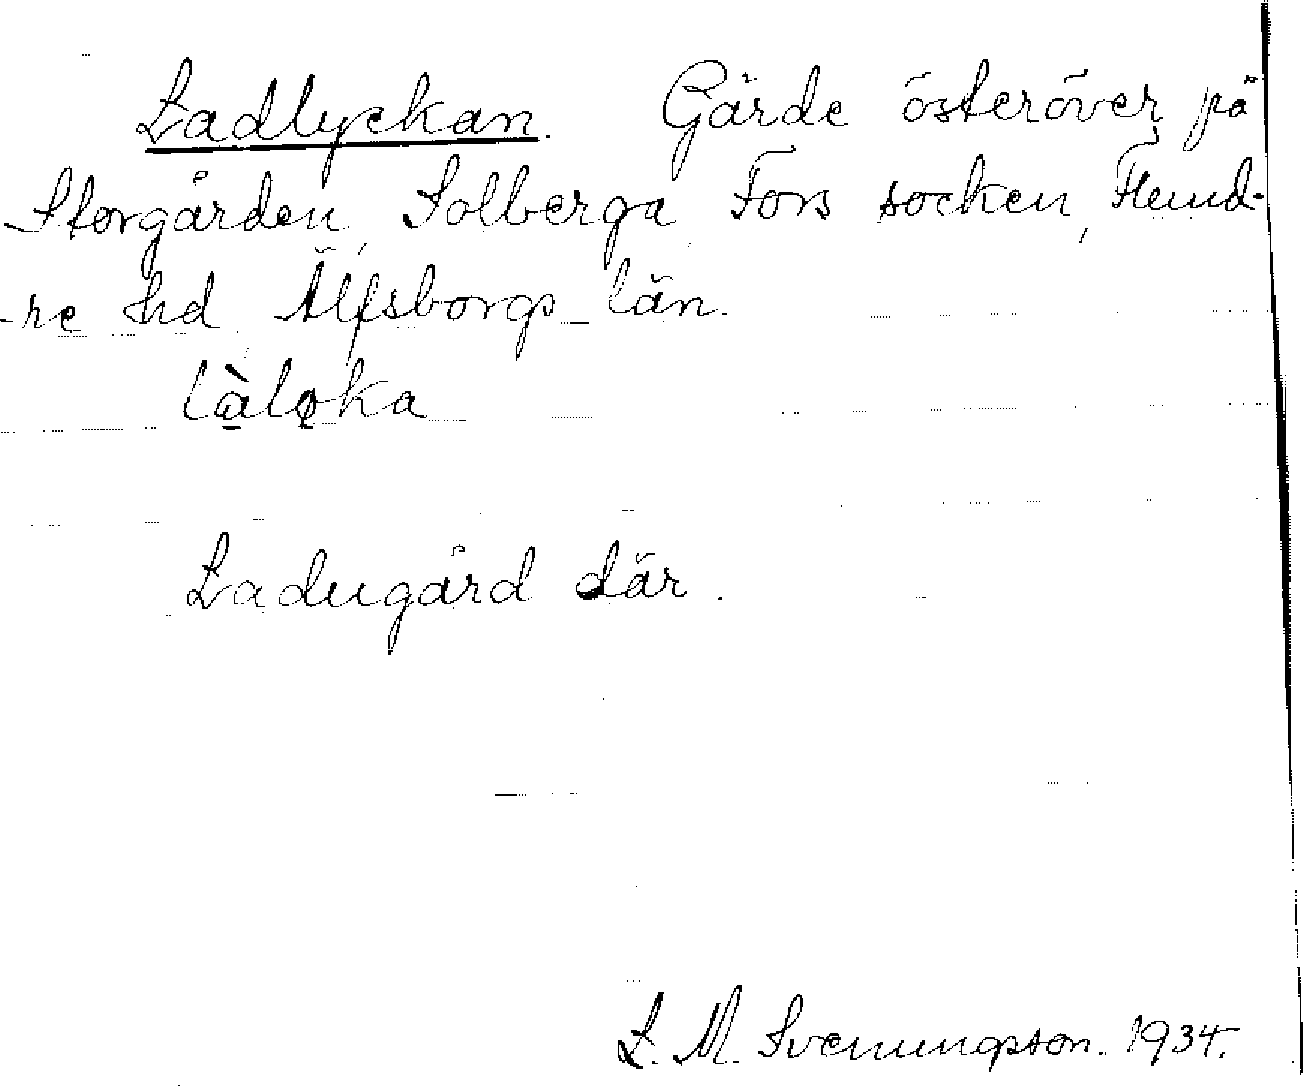 Ladlyckan. Gärde österöver på
Storgården, Solberga Fors socken, Flund-
-re hd Älfsborgs län.
làlo̱ka
Ladugård där.
L. M. Svenungsson. 1934.